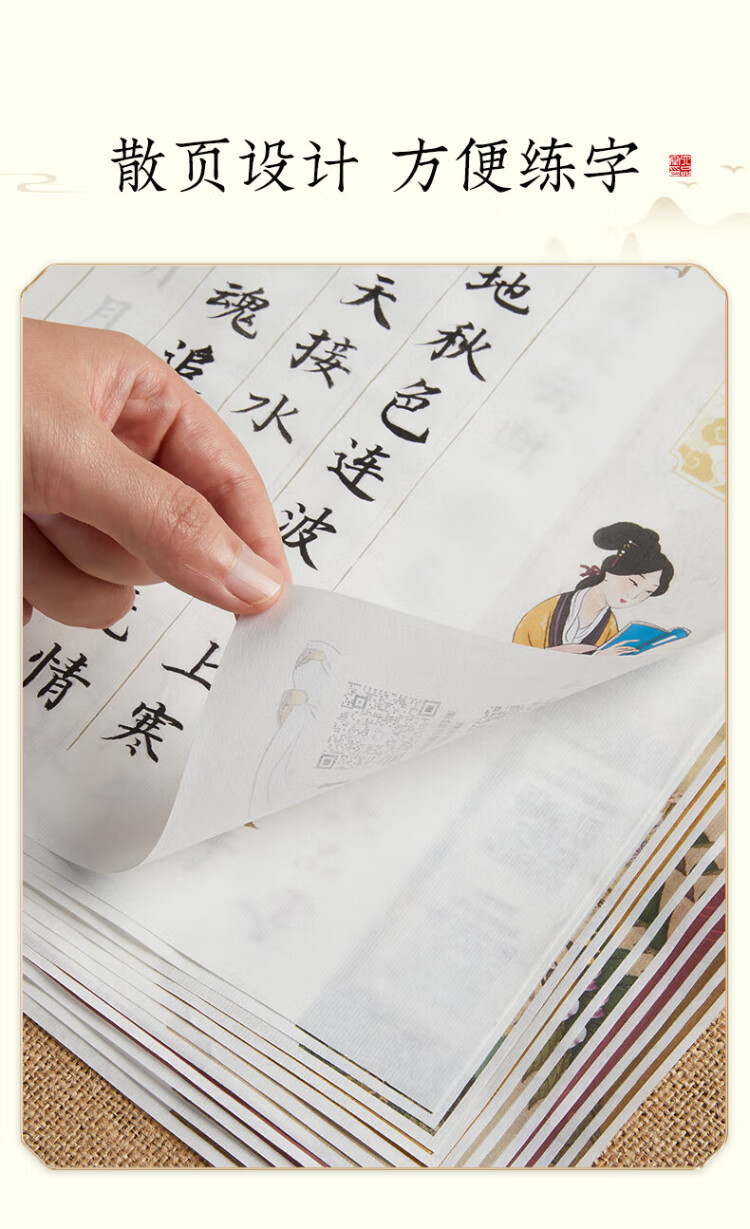 散页设计 方便练字
地秋色连波上寒
天接水情
魂追